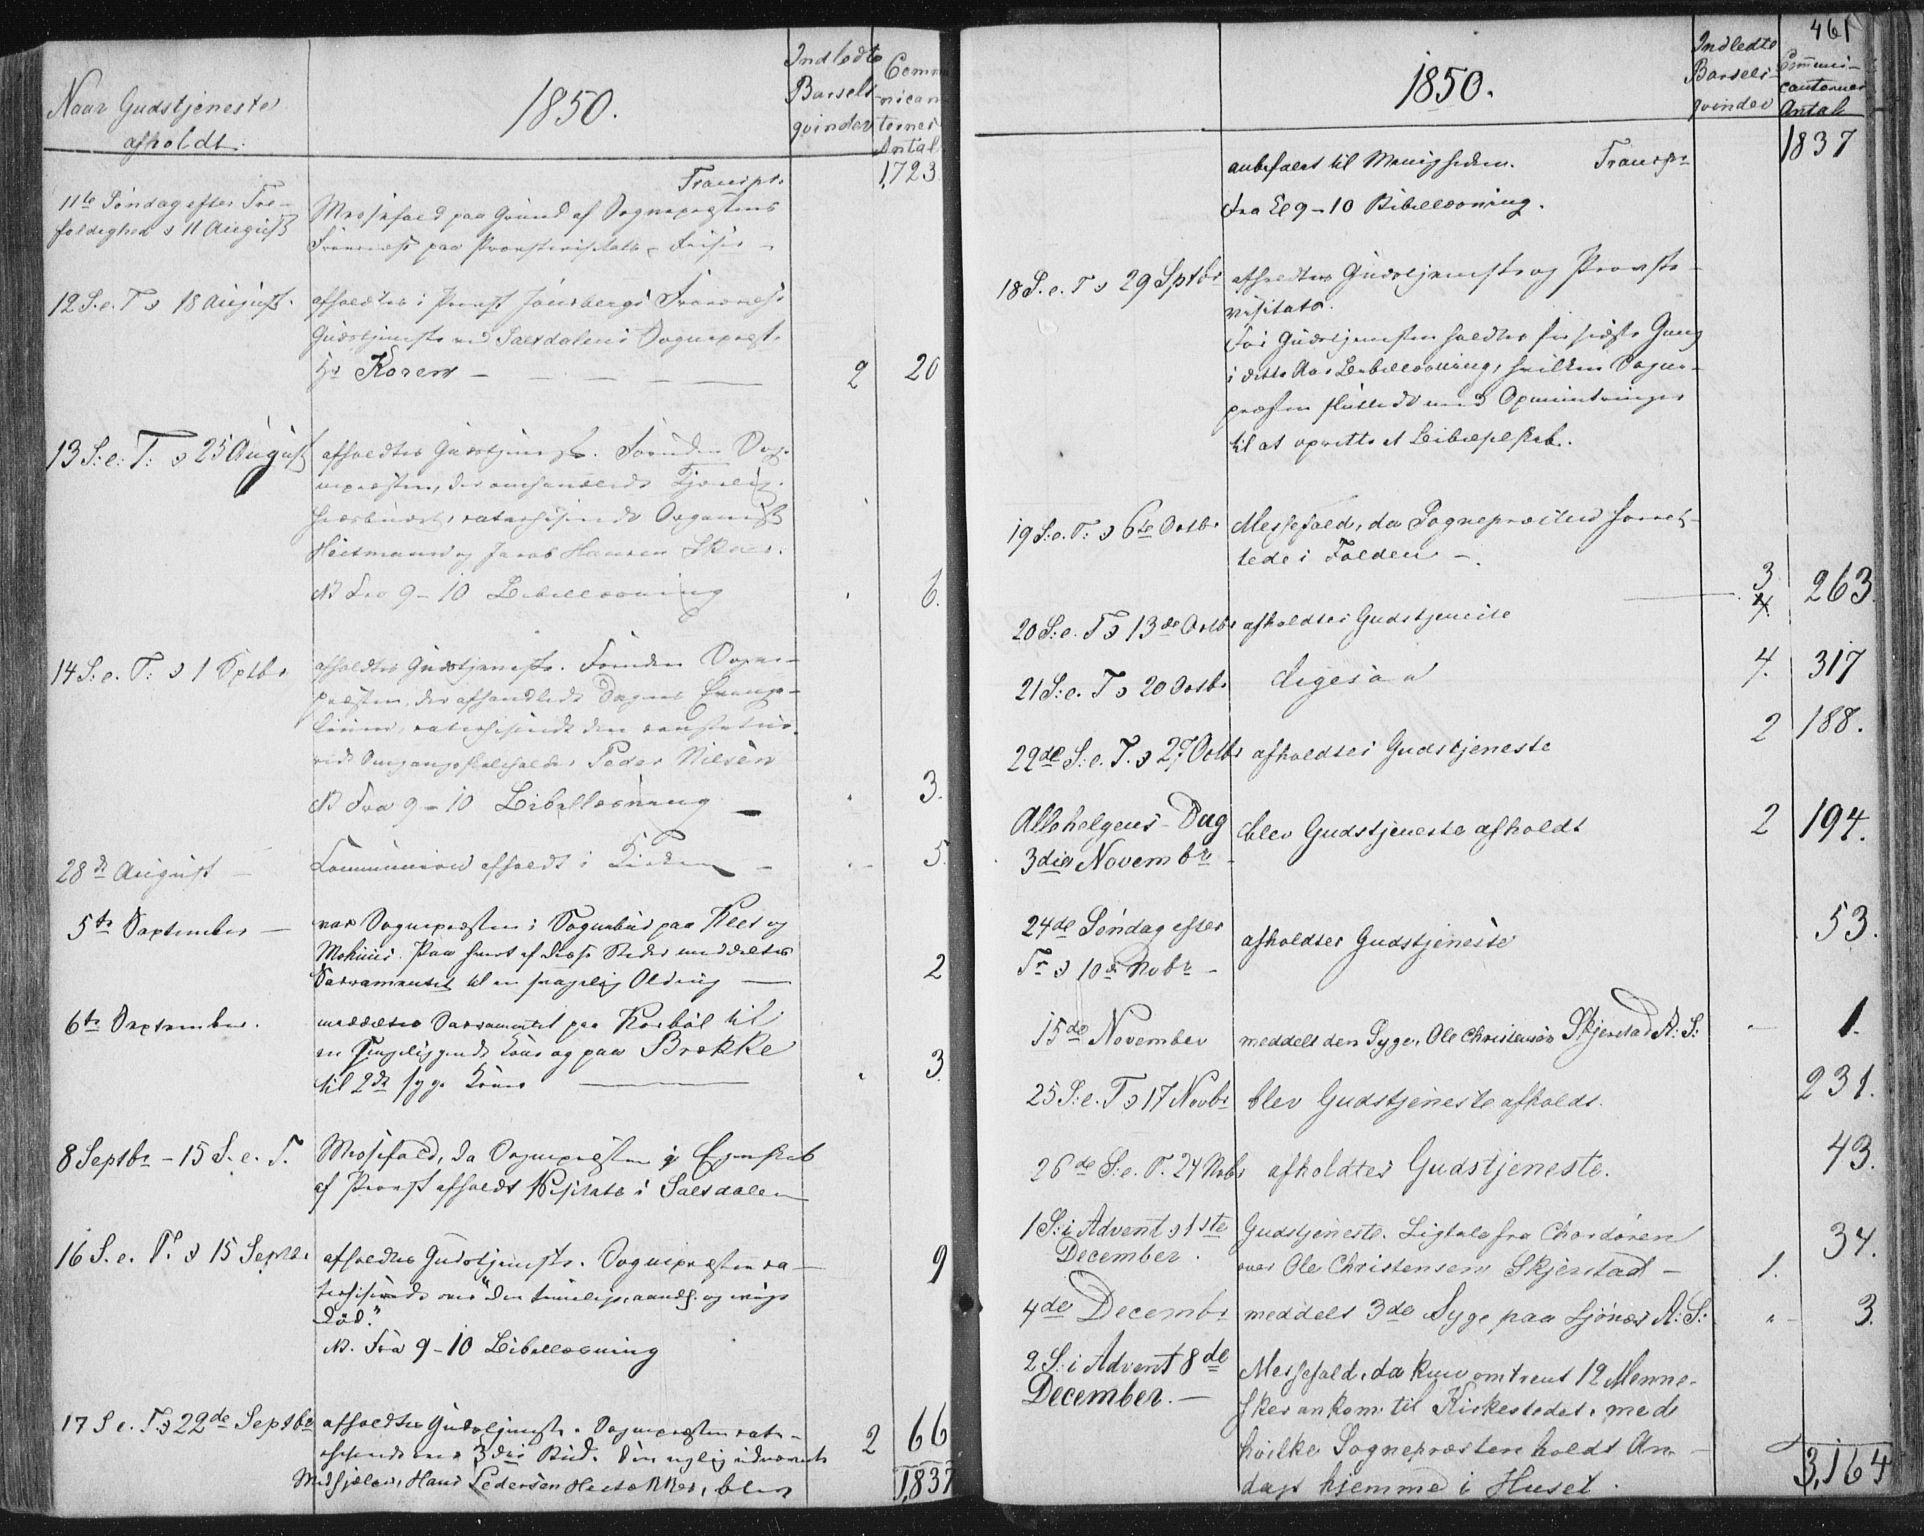 Naar Gudstjeneste
afholdt.
1850.
Indledte
Barsels
qvinder
Commu
nican
ternes
Antal
Transpt.
1,723.
11te Søndag efter Tre-
foldighed d 11 August
Messefald paa Grund af Sogneprestens
Fraværelse paa Provstevisitats
12 S. e. T. d 18 August.
afholdtes i Provst Jönsbergs Fraværelse
Gudstjeneste ved Saltdalens Sogneprest
Hr Koren
2
20
13 S: e: T: d 25 August
afholdtes Gudstjeneste. Foruden Sog-
nepresten, der omhandlede Kjærlig-
hedsbudet, catechiserede Organist
Heitmann og Jacob Hansen
NB Fra 9-10 Bibellæsning
6.
14 S. e. T: d 1 Sptbr
afholdtes Gudstjeneste. Foruden Sogne-
presten, der afhandlede Dagens Evange-
lium, catechiserede den constitue-
rede Omgangsskoleholder Peder Nilsen
NB Fra 9-10 Bibellæsning
3.
28de August
Communion afholdt i Kirken
5.
5te September
var Sognepresten i Sognebud paa Klet og
Paa hvert af disse Steder meddeltes
Sacramentet til en svagelig Olding
2
6te September.
meddeltes Sacramentet paa til
en Sengeliggende Kone og paa Brække
til 2de syge Koner
3.
8 Septbr - 15 S. e. T.
Messefald, da Sognepresten i Egenskab
af Provst afholdt Visitats i Saltdalen
16 S. e. T. d 15 Septbr.
afholdtes Gudstjeneste. Sognepresten ca-
techiserede over "den timelige, aandel. og evige
Död."
NB. Fra 9-10 Bibellæsning
9
17 S e. T. d 22de Septbr
afholdtes Gudstjeneste. Sognepresten cate-
chiserede over 3die Bud. Den nylig udnævnte
Medhjælper, Hans Pedersen, blev
2
66
1,837
461
1850.
Indledte
Barsels-
qvinder
Communi-
canternes
Antal
anbefalet til Menigheden. Transpt
1837
Fra Kl 9-10 Bibellæsning.
18 S. e. T d 29 Sptbr
afholdtes Gudstjeneste og Provste-
visitats.
Før Gudstjenesten holdtes for sidste Gang
i dette Aar Bibellæsning, hvilken Sogne-
presten sluttede med Opmuntringer
til at oprette et Bibelselskab.
19 S: e. T: d 6te Octbr
Messefald, da Sognepræsten forret-
tede i Folden -.
20 S: e. T d 13de Octbr
afholdtes Gudstjeneste
3
4
263.
21 S: e. T d 20 Octbr
ligesaa
4.
317
22de S: e. T. d 27 Octbr
afholdtes Gudstjeneste
2
188.
Allehelgens-Dag
3die Novembr
blev Gudstjeneste afholdt
2
194.
24de Søndag efter
Tr d 10de Novbr -
afholdtes Gudstjeneste
53.
15de November
meddelt den Syge, Ole Christensen Skjerstad A: S:
1.
25 S: e. T d 17 Novbr
blev Gudstjeneste afholdt.
231.
26de S: e. T. 24 Novbr
afholdtes Gudstjeneste.
43.
1 S: i Advent d 1ste
December.
Gudstjeneste. Ligtale fra Chordøren
over Ole Christensen Skjerstad -
1.
34.
4de Decembr
meddelt 3de Syge paa Ljönæs A: S:
3.
2 S: i Advent 8de
December. -
Messefald, da kun omtrent 12 Menne-
sker ankom til Kirkestedet, med
hvilke Sognepræsten holdt An-
dagt hjemme i Huset.
3,164